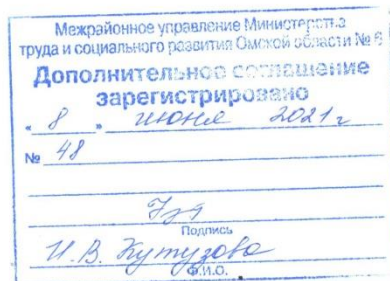 Межрайонное управление Министерства
труда и социального развития Омской области № 6
Дополнительное соглашение
зарегистрировано
" 8 " июня 2021 г
№ 48
Подпись
И. В. Кутузова
Ф.И.О.